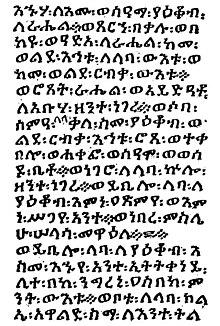 እኁሃ፡ለእሙ፡ወሰዓማ፡ያዕቆብ፡
ለራሔል፡ወጸርኀ፡በቃሉ፡ወበ
ከየ፡ወዓይድአ፡ለራሔል፡ከመ፡
ወልደ፡እኅቱ፡ለላባ፡ውእቱ፡ወ
ከመ፡ወልደ፡ርብቃ፡ውእቱ።
ወሮጸት፡ራሔል፡ወአይድዓቶ፡
ለአቡሃ፡ዘንተ፡ነገረ።ወሶበ፡
ሰምዓ፡ላባ፡ቃለ፡ስመ፡ያዕቆብ፡ወ
ልደ፡ርብቃ፡እኅቱ፡ሮጸ፡ወተቀ
በሎ፡ወሐቀፎ፡ወሰዓሞ፡ወወሰ
ዶ፡ቤቶ።ወነገሮ፡ለላባ፡ኵሎ፡
ዘንተ፡ነገረ።ወይቤሎ፡ላባ፡ለ
ያዕቆብ፡እምነ፡ዐጽምየ፡ወእም
ነ፡ሥጋየ፡አንተ።ወነበረ፡ምስሌ
ሁ፡ሠላሳ፡መዋዕለ።
ወይቤሎ፡ላባ፡ለያዕቆብ፡እ
ስመ፡እኁየ፡አንተ፡ኢትትቀነይ፡
ሊተ፡በከ፡ንግረኒ፡ዐስበከ፡ም
ንት፡ውእቱ።ወቦቱ፡ለላባ፡ክል
ኤ፡አዋልድ፡ስማ፡ለእንተ፡ትል